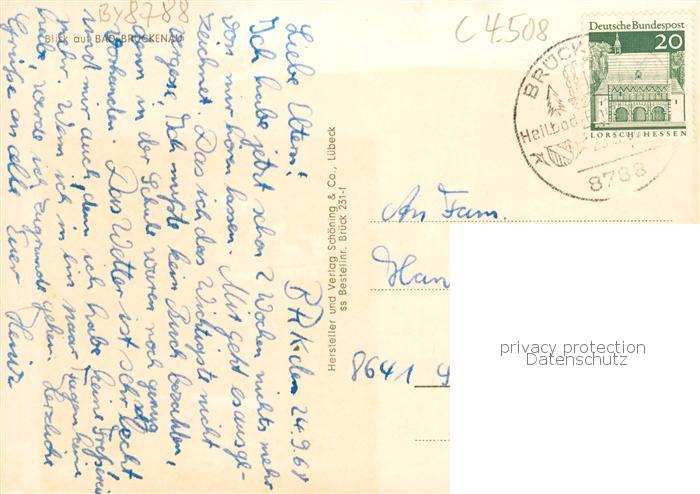 BY8788
Blick auf BAD BRÜCKENAU
C4508
Deutsche Bundespost
20
LORSCH/HESSEN
BRÜCK
Heilbad
8788
BRK den 24.9.68
Liebe Eltern!
Ich habe jetzt schon 2 Wochen nichts mehr
von mir hören lassen. Mir geht es ausge-
zeichnet. Das ich das Wichtigste nicht
vergesse, Ich mußte kein Buch bezahlen,
denn in der Schule waren noch genug
vorhanden. Das Wetter ist sehr schlecht
und mir auch, denn ich habe keine Fresserei
mehr. Wenn ich in ein paar Tagen keine
habe, werde ich zugrunde gehen. Herzliche
Grüße an alle Euer Heinz
Hersteller und Verlag Schöning & Co., Lübeck
ss Bestellnr. Brück 231-f
An Fam.
Han
8641
privacy protection
Datenschutz